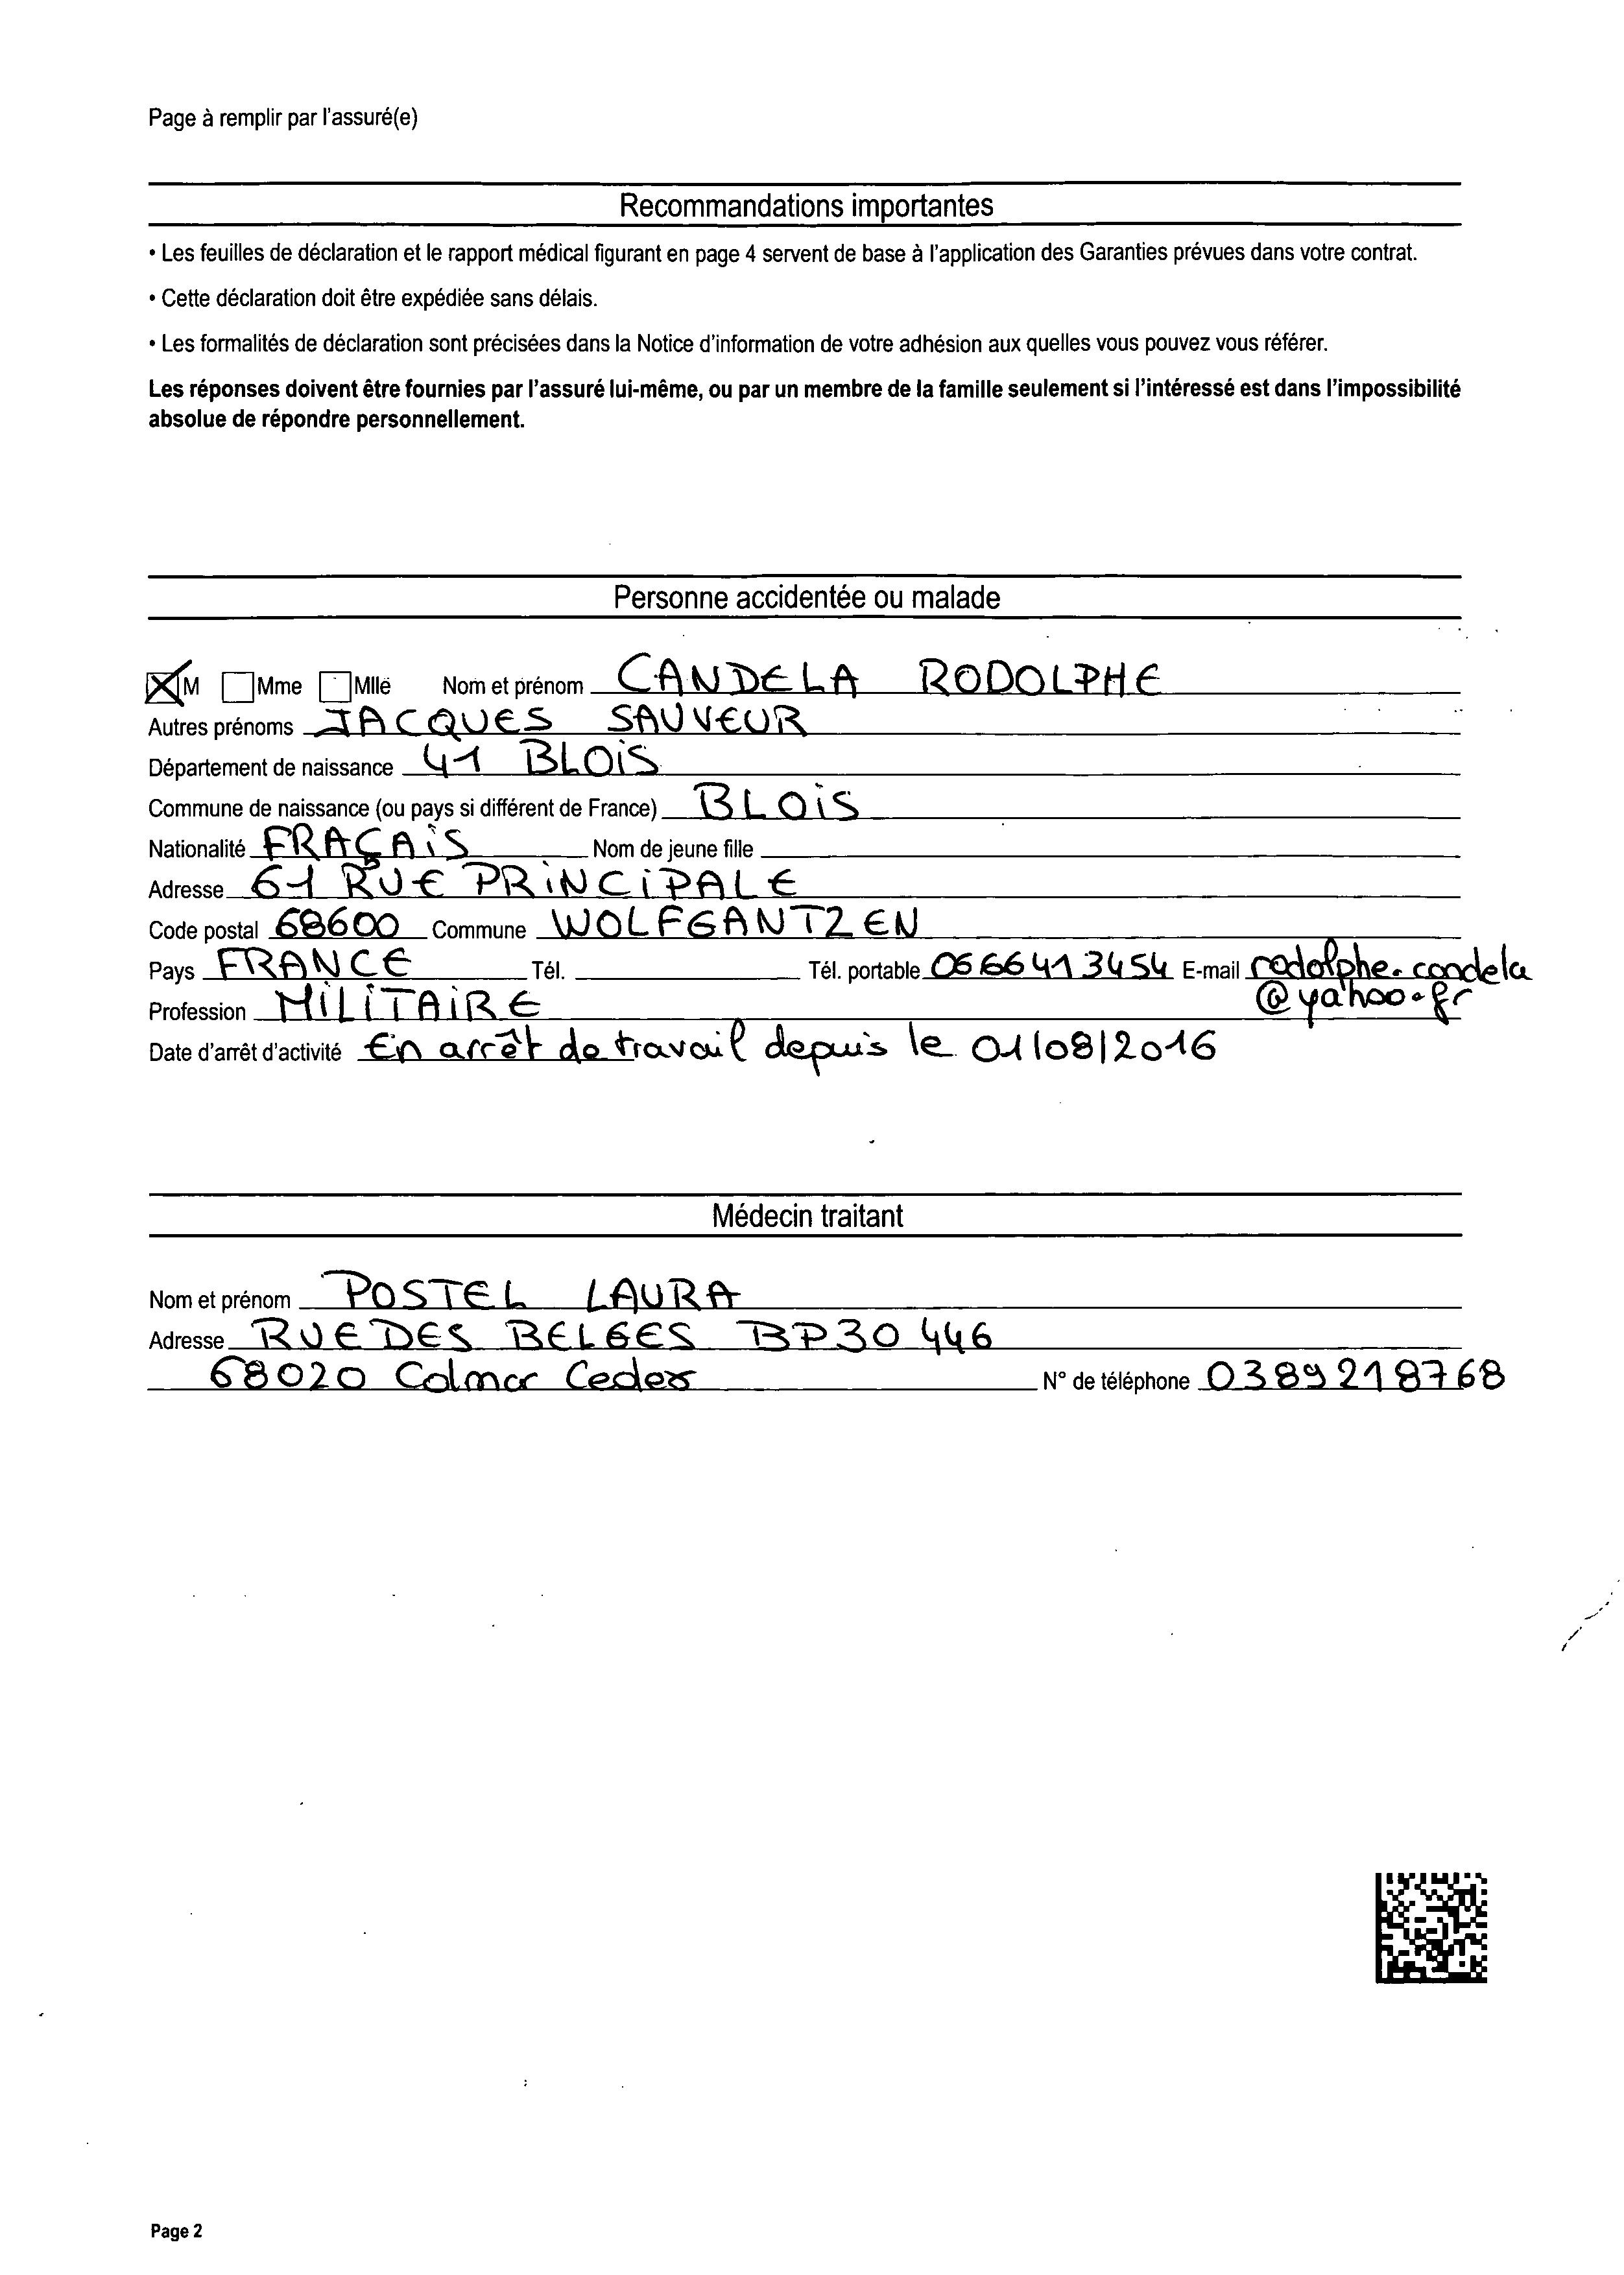 Page à remplir par l'assuré(e)
Recommandations importantes
• Les feuilles de déclaration et le rapport médical figurant en page 4 servent de base à l'application des Garanties prévues dans votre contrat.
• Cette déclaration doit être expédiée sans délais.
• Les formalités de déclaration sont précisées dans la Notice d'information de votre adhésion aux quelles vous pouvez vous référer.
Les réponses doivent être fournies par l'assuré lui-même, ou par un membre de la famille seulement si l'intéressé est dans l'impossibilité
absolue de répondre personnellement.
Personne accidentée ou malade
M Mme Mlle Nom et prénom CANDELA RODOLPHE
Autres prénoms JACQUES SAUVEUR
Département de naissance 41 BLOiS
Commune de naissance (ou pays si différent de France) BLOiS
Nationalité FRAÇAiS Nom de jeune fille
Adresse 61 RUE PRiNCiPALE
Code postal 68600 Commune WOLFGANTZEN
Pays FRANCE Tél. Tél. portable 0666413454 E-mail rodolphe.candela
@yahoo.fr
Profession MiLiTAiRE
Date d'arrêt d'activité En arrêt de travail depuis le 01/08/2016
Médecin traitant
Nom et prénom POSTEL LAURA
Adresse RUE DES BELGES BP30 446
68020 Colmar Cedex N° de téléphone 0389218768
Page 2